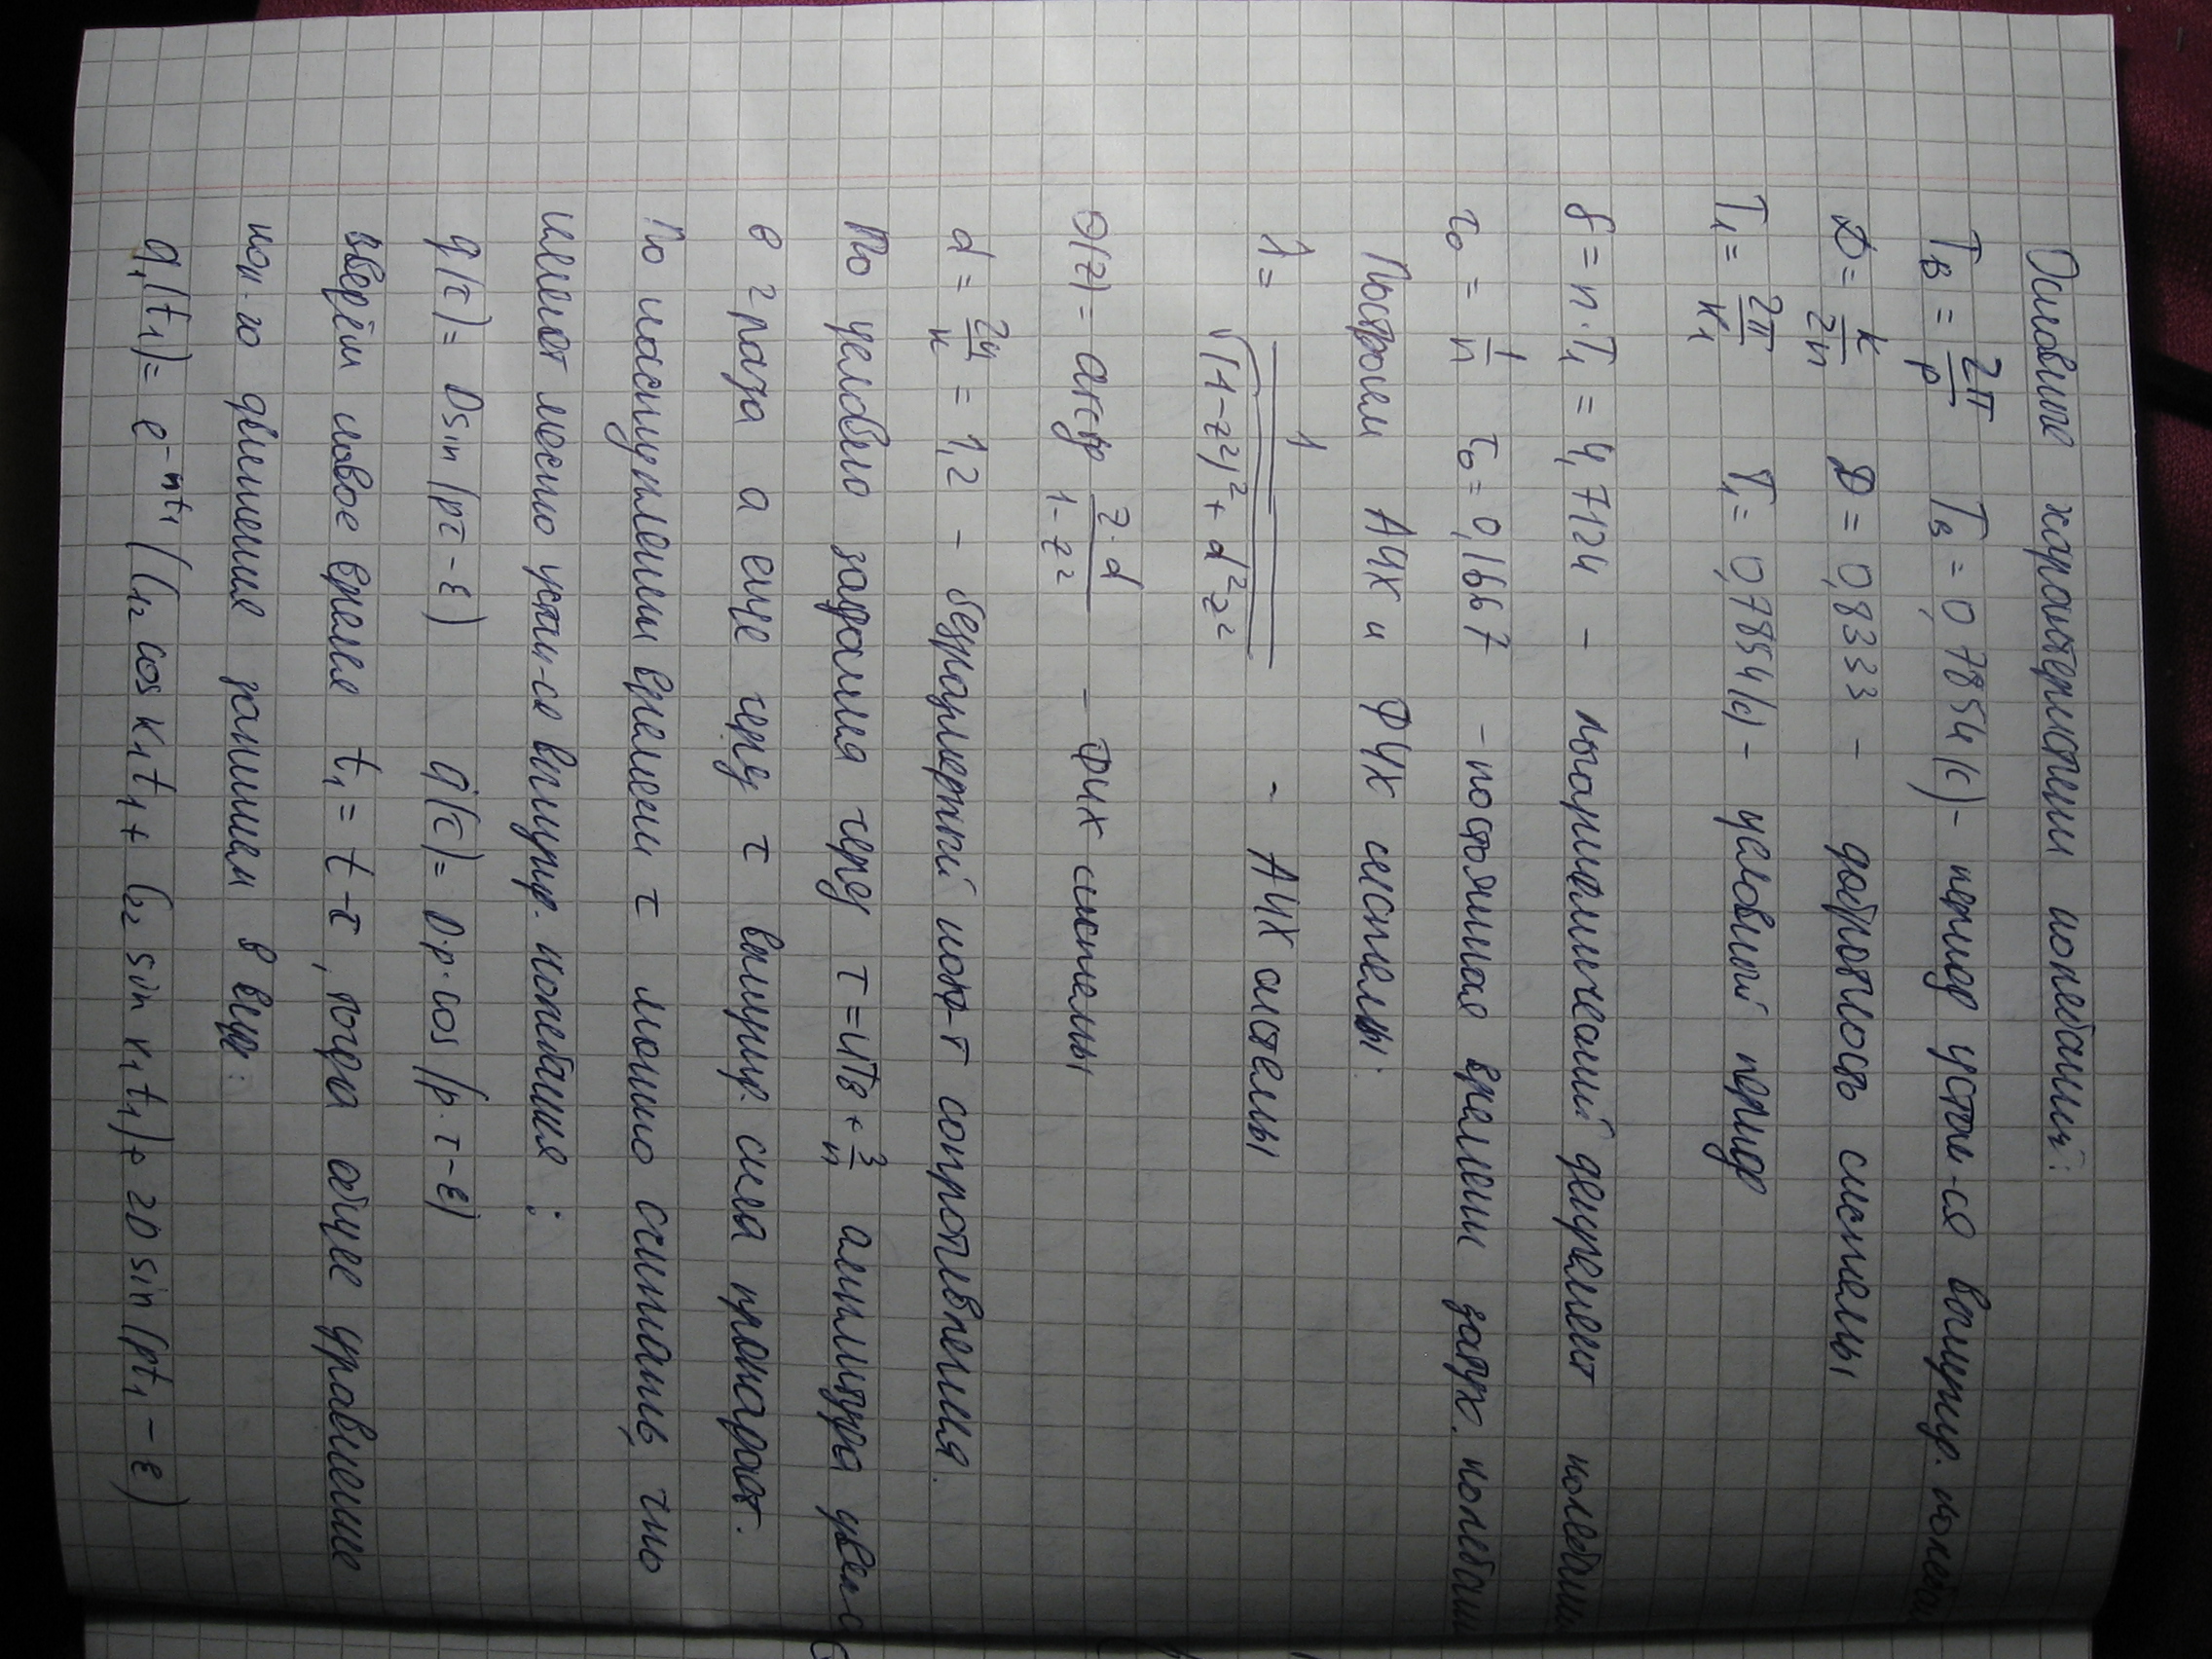 Основные характеристики колебаний:
T_в = 2π/p   T_в = 0,7854 (с) - период устан-ся вынужд. колебан
D = k/2n   D = 0,8333 - добротность системы
T₁ = 2π/k₁   T₁ = 0,7854 (с) - условный период
δ = n·T₁ = 4,7124 - логарифмический декремент колебани
τ₀ = 1/n   τ₀ = 0,1667 - постоянная времени затух. колебани
Построим АЧХ и ФЧХ системы:
λ = 1/√((1-z²)² + d²z²) - АЧХ системы
Θ(z) = arctg z·d/(1-z²) - ФЧХ системы
d = 2n/k = 1,2 - безразмерный коэф-т сопротивления.
По условию задания через τ = 4Tв + 3/n амплитуда увел-с
в 2 раза а еще через τ вынужд. сила пропадает.
По наступлении времени τ можно считать, что
имеют место устан-ся вынужд. колебания:
q(τ) = D sin(pτ - ε)   q̇(τ) = D·p·cos(p·τ - ε)
введём новое время t₁ = t - τ, тогда общее уравнение
кол-го движения запишем в виде:
q₁(t₁) = e^(-nt₁) (C₁₂ cos k₁t₁ + C₂₂ sin k₁t₁) + 2D sin(pt₁ - ε)